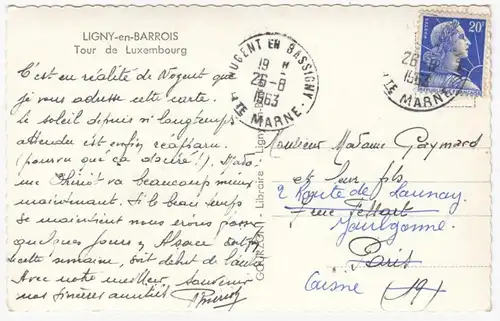 LIGNY-en-BARROIS
Tour de Luxembourg
C'est en réalité de Nogent que
je vous adresse cette carte.
Le soleil depuis si longtemps
attendu est enfin réapparu.
(pourvu que ça dure!).
me Thirit va beaucoup mieux
maintenant. Si le beau temps
se maintient nous irons passer
quelques jours en Alsace
cette semaine, soit début de
Avec notre meilleur souvenir
nos sincères amitiés
NOGENT EN BASSIGNY
19 H
26-8
1963
HTE MARNE
20F
26-8
1963
HTE MARNE
Libraire - Ligny
Monsieur Madame Gaymard
et leur fils
2 Route de Launay
7 rue
Paris
Aisne (19)